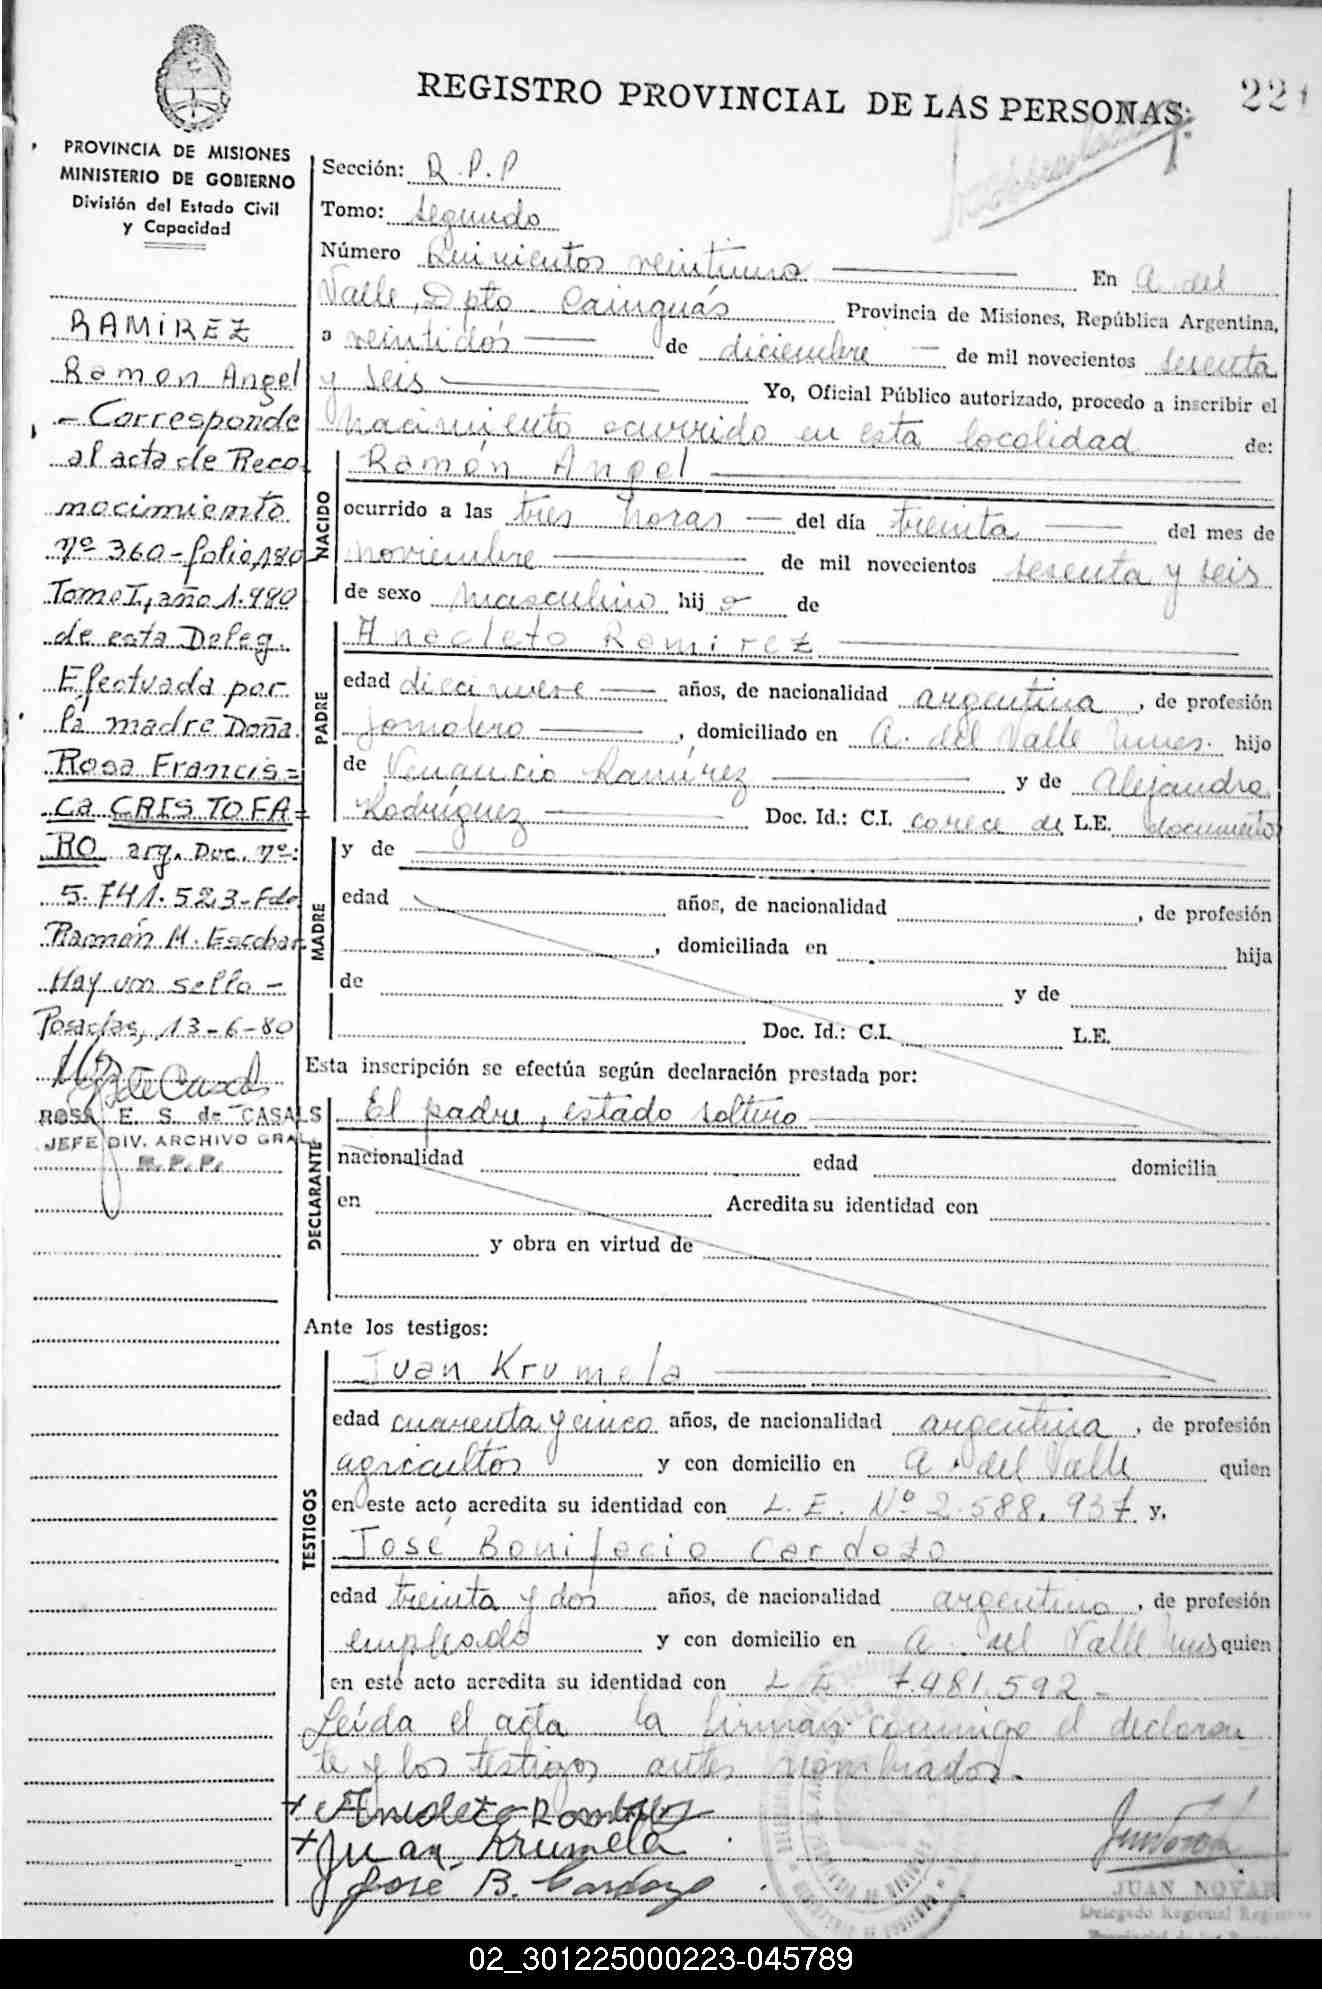 REGISTRO PROVINCIAL DE LAS PERSONAS.
221
PROVINCIA DE MISIONES
MINISTERIO DE GOBIERNO
División del Estado Civil
y Capacidad
RAMIREZ
Ramon Angel
- Corresponde
al acta de Reco
nocimiento
nº 360 - folio 180
Tomo I, año 1.980
de esta Deleg.
Efectuada por
la madre Doña
Rosa Francis=
ca CRISTOFA=
RO arg. Doc. nº:
5.741.523 - Fdo
Ramón M. Escobar
Hay un sello -
Posadas, 13-6-80
ROSA E. S. de CASALS
JEFE DIV. ARCHIVO GRAL
R.P.P.
Sección: R.P.P
Tomo: Segundo
Número Quinientos veintiuno En A. del
Valle, Dpto. Cainguás Provincia de Misiones, República Argentina,
a veintidós de diciembre de mil novecientos sesenta
y seis Yo, Oficial Público autorizado, procedo a inscribir el
nacimiento ocurrido en esta localidad de:
NACIDO
Ramón Angel
ocurrido a las tres horas del día treinta del mes de
noviembre de mil novecientos sesenta y seis
de sexo masculino hij o de
PADRE
Anacleto Ramirez
edad diecinueve años, de nacionalidad argentina, de profesión
jornalero, domiciliado en A. del Valle Mnes. hijo
de Venancio Ramírez y de Alejandra
Rodríguez Doc. Id.: C.I. carece de L.E. documento
MADRE
y de
edad años, de nacionalidad , de profesión
, domiciliada en hija
de y de
Doc. Id.: C.I. L.E.
Esta inscripción se efectúa según declaración prestada por:
DECLARANTE
El padre, estado soltero
nacionalidad edad domicilia
en Acredita su identidad con
y obra en virtud de
Ante los testigos:
TESTIGOS
Juan Krumela
edad cuarenta y cinco años, de nacionalidad argentina, de profesión
agricultor y con domicilio en A. del Valle quien
en este acto acredita su identidad con L.E. Nº 2.588.937 y,
José Bonifacio Cardozo
edad treinta y dos años, de nacionalidad argentino, de profesión
empleado y con domicilio en A. del Valle Mnes quien
en este acto acredita su identidad con L E 7.481.592 -
Leída el acta la firman conmigo el declaran
te y los testigos antes nombrados.
Anacleto Ramirez
Juan Krumela
José B. Cardozo
JUAN NOVAK
Delegado Regional
02_301225000223-045789